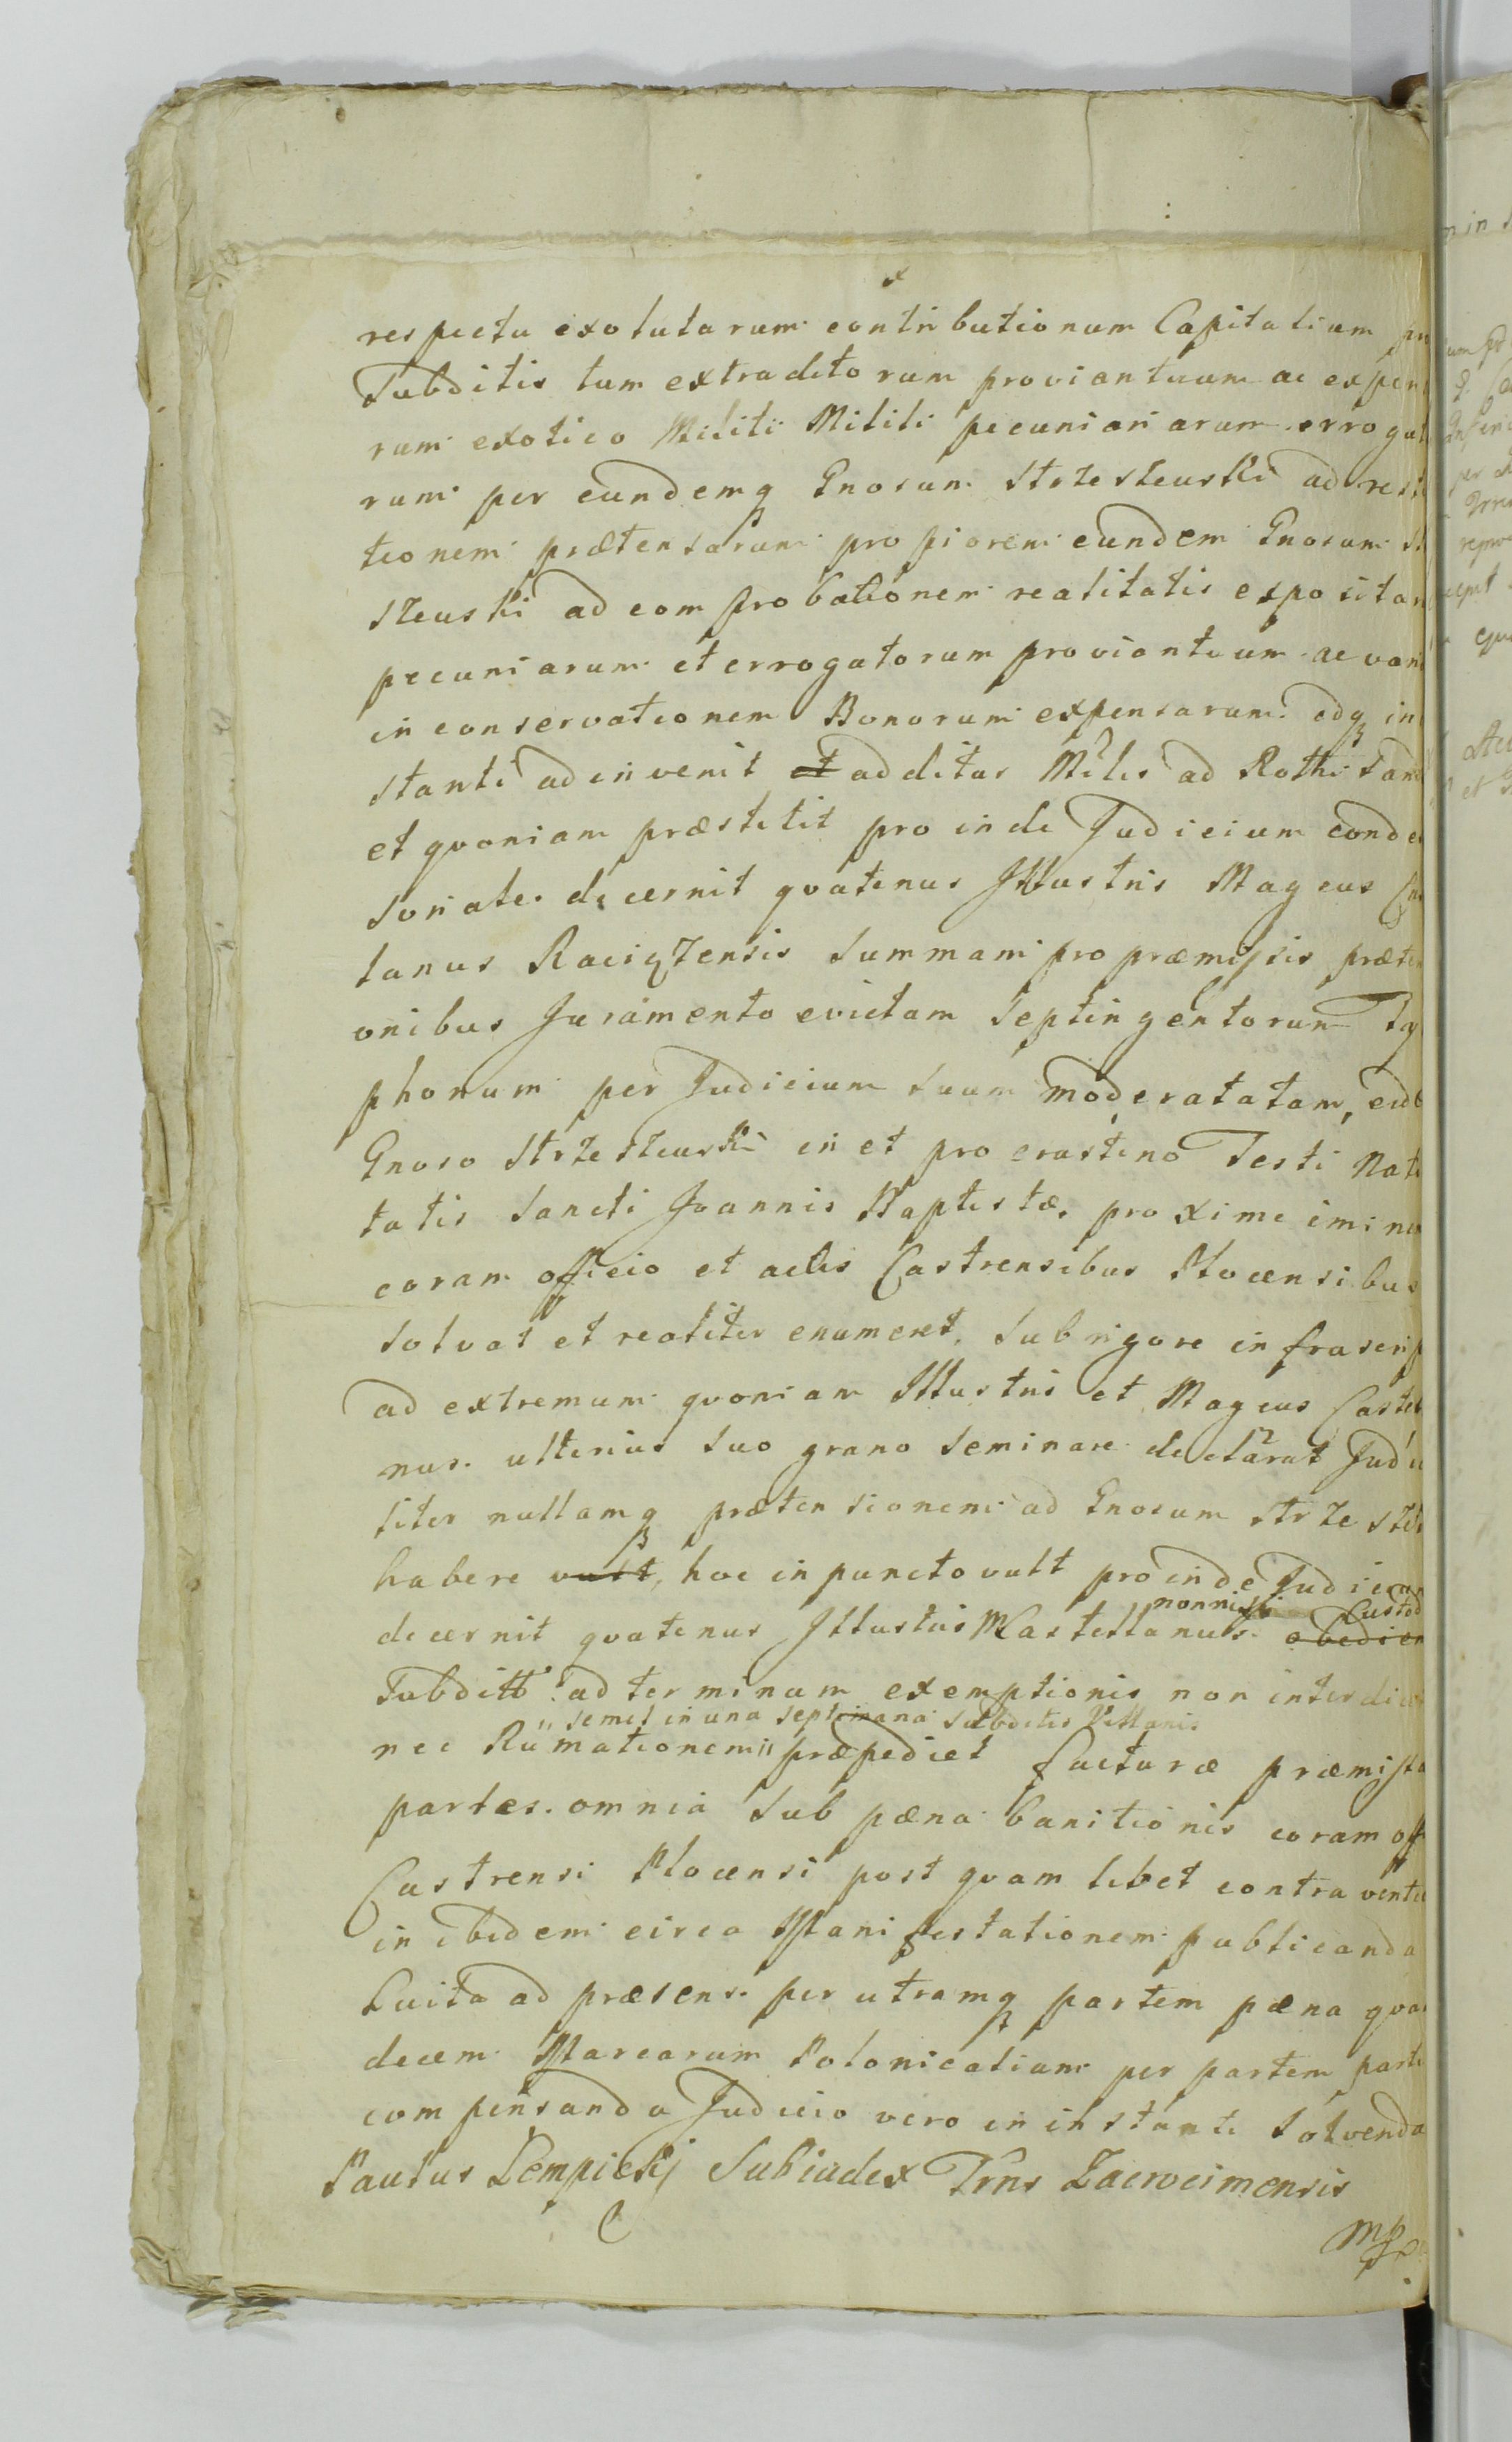 respectu exolutarum contributionum Capitalium pro
Subditis tum extraditorum provientuum ac expen
rum exotico Militi Militi pecuniariarum errogat
rum per eundemq Gnosum Strzeszewski ad resti
tionem prætensarum propiorem eundem Gnosum St
szewski ad comprobationem realitatis expositar
pecuniarum et errogatorum provientuum ac vari
in conservationem Bonorum expensarum. idq in
stanti adinvenit et additas Milis ad Rotham
et quoniam præstitit proinde Judicium conde
soriale. decernit quatenus Illustris Magcus
lanus Raciązensis Summam pro præmissis præte
onibus Juramento evictam Septingentorum Ty
phorum per Judicium suum moderatatam, eid
Gnoso Strzeszewski in et pro crastino Festi Nati
tatis Sancti Joannis Baptistæ, proxime imine
coram officio et actis Castrensibus Plocensibus
solvat et realiter enumeret, sub rigore infrascrip
ad extremum quoniam Illustris et Magcus Castel
nus. ulterius suo grano seminare declarat Judi
liter nullamq prætensionem ad Gnosum Strzesze
habere vult, hoc in puncto vult proinde Judicium
nonnisi Custod
decernit quatenus Illustris M Castellanus. obedien
subditt. ad terminum exemptionis non interdic
semel in una septimana subditis Villanis
nec Rumationem præpediet facturæ præmissa
partes. omnia sub pæna banitionis coram off
Castrensi Plocensi post quamlibet contraventi
in ibidem circa Manifestationem publicanda
Luita ad præsens. per utramq partem pæna qua
decem Marcarum Polonicalium per partem parti
compensanda Judicio vero in instanti solvenda
Paulus Lempickj Subiudex Trns Zacrocimensis
mpp